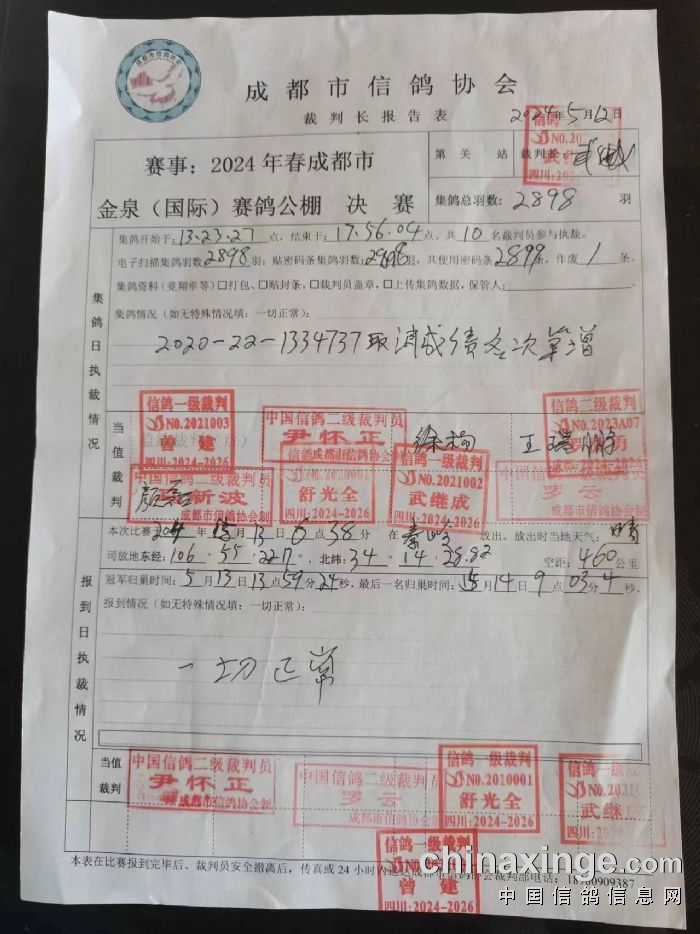 成都市信鸽协会
成都市信鸽协会
裁判长报告表
2024年5月12日
赛事：2024年春成都市
金泉（国际）赛鸽公棚 决 赛
第 关 站 裁判长：武继成
集鸽总羽数：2898 羽
集鸽日执裁情况
集鸽开始于：13.23.27点，结束于：17.56.04点。共10名裁判员参与执裁。
电子扫描集鸽羽数2898羽；贴密码条集鸽羽数：2898羽，共使用密码条2899条，作废1条。
集鸽资料（竞翔单等）□打包、□贴封条，□裁判员盖章，□上传集鸽数据，保管人：
集鸽情况（如无特殊情况填：一切正常）：
2020-22-1334737取消成绩名次
当值裁判
信鸽一级裁判 NO.2021003 曾建 四川:2024-2026
中国信鸽二级裁判员 尹怀正 成都市信鸽协会制
王瑞鹏
信鸽二级裁判 NO.2023A07
成都市信鸽协会制
NO.2010001 舒光全 四川:2024-2026
信鸽一级裁判 NO.2021002 武继成 四川:2024-2026
中国信鸽二级裁判员 罗云 成都市信鸽协会制
报到日执裁情况
13日6点38分 在秦岭放出。放出时当地天气：晴
司放地东经：106.55.2217，北纬：34.14.28.82 空距：460公里
冠军归巢时间：5月13日13点59分24秒，最后一名归巢时间：5月14日9点03分4秒，
报到情况（如无特殊情况填：一切正常）：
一切正常
当值裁判
中国信鸽二级裁判员 尹怀正 成都市信鸽协会制
中国信鸽二级裁判员 罗云 成都市信鸽协会制
信鸽一级裁判 NO.2010001 舒光全 四川:2024-2026
信鸽一级裁判 武继成 四川:2024-2026
信鸽一级裁判 曾建 四川:2024-2026
本表在比赛报到完毕后、裁判员安全撤离后，传真或24小时内
裁判部电话：18780909387
chinaxinge.com
中国信鸽信息网